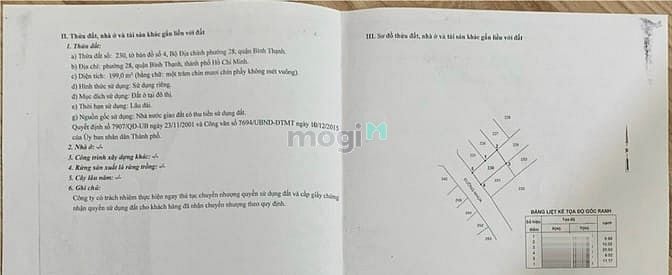 II. Thửa đất, nhà ở và tài sản khác gắn liền với đất
1. Thửa đất:
a) Thửa đất số: 230, tờ bản đồ số 4, Bộ Địa chính phường 28, quận Bình Thạnh.
b) Địa chỉ: phường 28, quận Bình Thạnh, thành phố Hồ Chí Minh.
c) Diện tích: 199,0 m² (bằng chữ: một trăm chín mươi chín phẩy không mét vuông).
d) Hình thức sử dụng: Sử dụng riêng.
đ) Mục đích sử dụng: Đất ở tại đô thị.
e) Thời hạn sử dụng: Lâu dài.
g) Nguồn gốc sử dụng: Nhà nước giao đất có thu tiền sử dụng đất.
Quyết định số 7907/QĐ-UB ngày 23/11/2001 và Công văn số 7694/UBND-ĐTMT ngày 10/12/2015
của Ủy ban nhân dân Thành phố.
2. Nhà ở: -/-
3. Công trình xây dựng khác: -/-
4. Rừng sản xuất là rừng trồng: -/-
5. Cây lâu năm: -/-
6. Ghi chú:
Công ty có trách nhiệm thực hiện ngay thủ tục chuyển nhượng quyền sử dụng đất và cấp giấy chứng
nhận quyền sử dụng đất cho khách hàng đã nhận chuyển nhượng theo quy định.
mogi
III. Sơ đồ thửa đất, nhà ở và tài sản khác gắn liền với đất
226
227
228
230
BẢNG LIỆT KÊ TỌA ĐỘ GÓC RANH
Số hiệu điểm
Tọa độ
X(m)
Y(m)
Cạnh
1
2
3
4
5
1